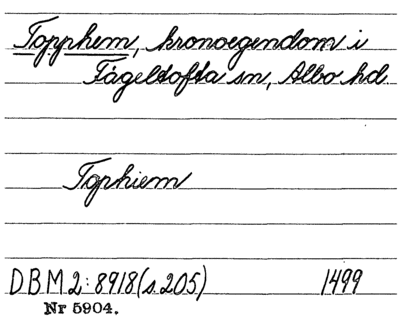 Topphem, kronoegendom i
Fågeltofta sn, Albo hd.
Tophiem
DBM 2: 8918 (s. 205) 1499
Nr 5904.